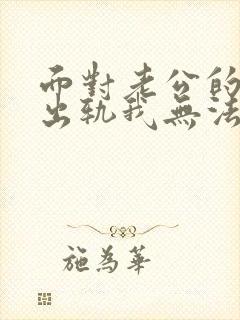 而對老公的
出軌我無法
施為華